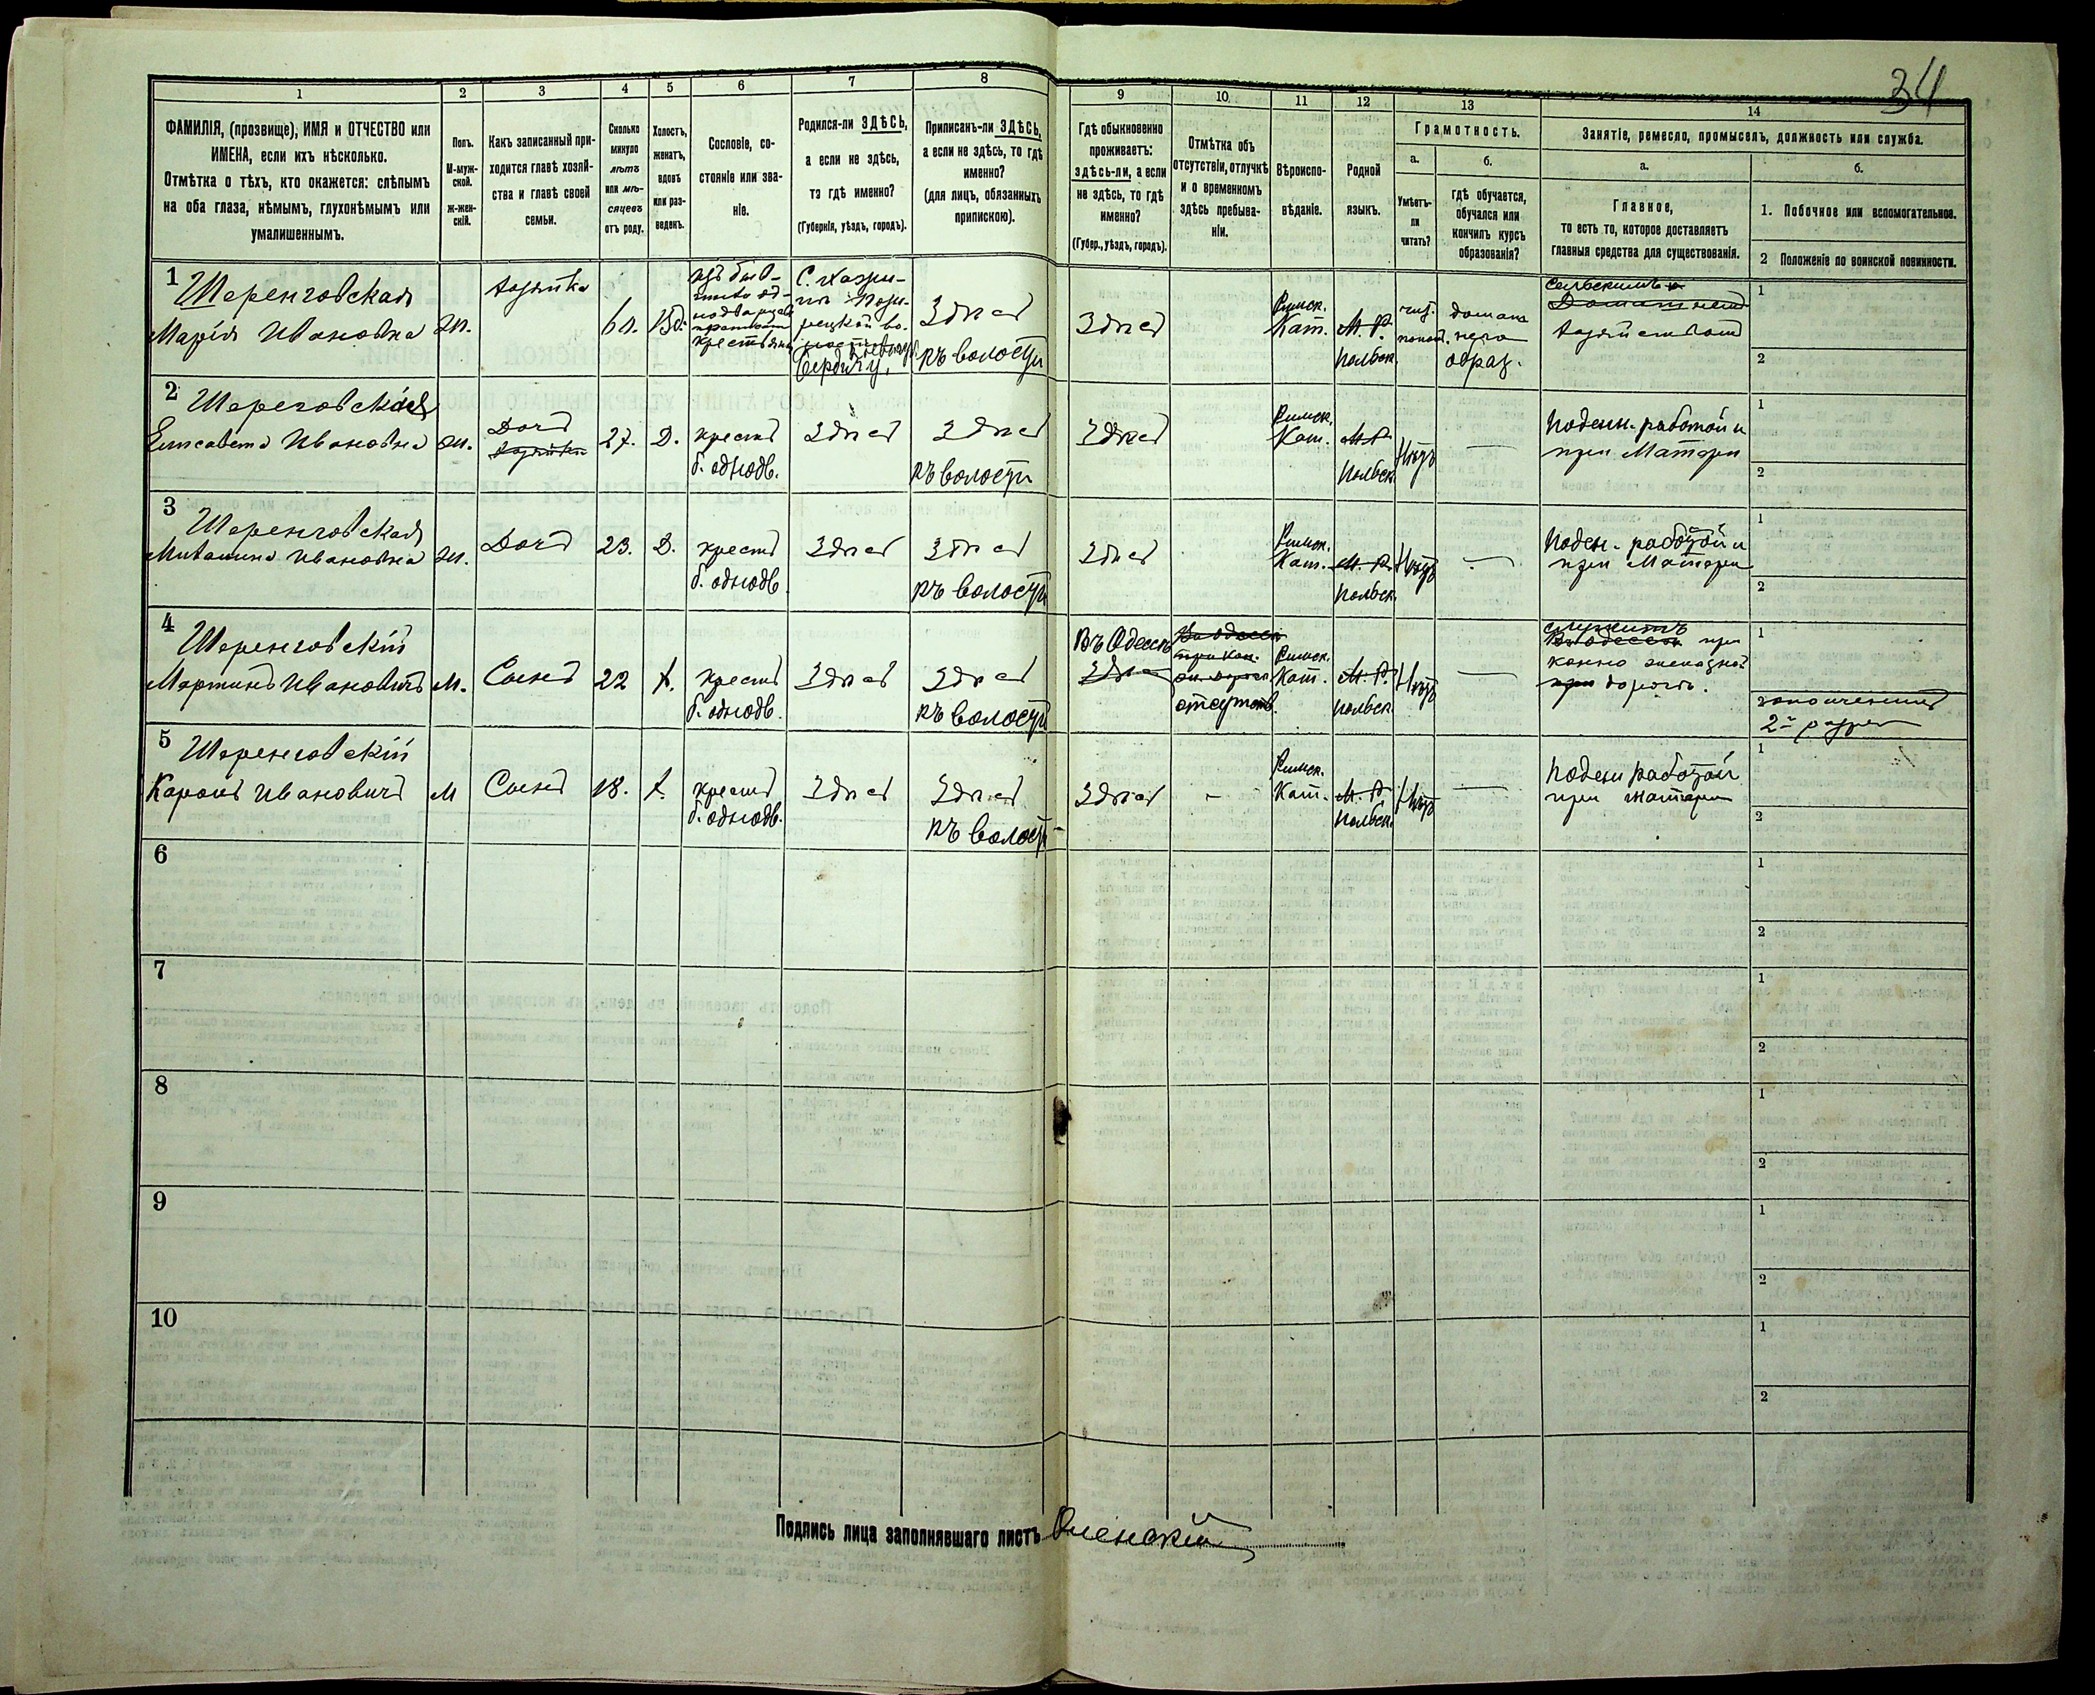 34
1
2
3
4
5
6
7
8
9
10
11
12
13
14
ФАМИЛІЯ, (прозвище), ИМЯ и ОТЧЕСТВО или
ИМЕНА, если ихъ нѣсколько.
Отмѣтка о тѣхъ, кто окажется: слѣпымъ
на оба глаза, нѣмымъ, глухонѣмымъ или
умалишеннымъ.
Полъ.
М-муж-
ской.
ж-жен-
скій.
Какъ записанный при-
ходится главѣ хозяй-
ства и главѣ своей
семьи.
Сколько
минуло
лѣтъ
или мѣ-
сяцевъ
отъ роду.
Холостъ,
женатъ,
вдовъ
или раз-
веденъ.
Сословіе, со-
стояніе или зва-
ніе.
Родился-ли ЗДѢСЬ,
а если не здѣсь,
то гдѣ именно?
(Губернія, уѣздъ, городъ).
Приписанъ-ли ЗДѢСЬ,
а если не здѣсь, то гдѣ
именно?
(для лицъ, обязанныхъ
припискою).
Гдѣ обыкновенно
проживаетъ:
здѣсь-ли, а если
не здѣсь, то гдѣ
именно?
(Губер., уѣздъ, городъ).
Отмѣтка объ
отсутствіи, отлучкѣ
и о временномъ
здѣсь пребыва-
ніи.
Вѣроиспо-
вѣданіе.
Родной
языкъ.
Грамотность.
а.
Умѣетъ-
ли
читать?
б.
гдѣ обучается,
обучался или
кончилъ курсъ
образованія?
Занятіе, ремесло, промыселъ, должность или служба.
а.
Главное,
то есть то, которое доставляетъ
главныя средства для существованія.
б.
1. Побочное или вспомогательное.
2 Положеніе по воинской повинности.
1
Шеренговская
Марія Ивановна
ж.
хозяйка
60.
Вд.
Здѣсь
къ волости
Здѣсь
Римск.
Кат.
М. Р.
польск.
домаш
образ.
хозяйством
1
2
2
Шереговская
Елисавета Ивановна
ж.
Дочь
хозяйки
27.
Д.
крест
б. однодв.
Здѣсь
Здѣсь
къ волости
Здѣсь
Римск.
Кат.
М. Р.
польск.
Нѣтъ
—
поденн. работой и
при Матери
1
2
3
Шеренговская
Ивановна
ж.
Дочь
23.
Д.
крест
б. однодв.
Здѣсь
Здѣсь
къ волости
Здѣсь
Римск.
Кат.
М. Р.
польск.
Нѣтъ
—
поден. работой и
при Матери
1
2
4
Шеренговскій
Мартинъ Ивановичъ
М.
Сынъ
22
х.
крест
б. однодв.
Здѣсь
Здѣсь
къ волости
Въ Одессѣ
Здѣсь
отсутств.
Римск.
Кат.
М. Р.
польск.
Нѣтъ
—
служитъ
въ Одессѣ при
конно
при дорогѣ.
1
ополченецъ
2й разр
5
Шеренговскій
Каролъ Ивановичъ
М
Сынъ
18.
х.
крест
б. однодв.
Здѣсь
Здѣсь
къ волости
Здѣсь
—
Римск.
Кат.
М. Р.
польск.
Нѣтъ
—
поден работой
при матери
1
2
6
1
2
7
1
2
8
1
2
9
1
2
10
1
2
Подпись лица заполнявшаго листъ